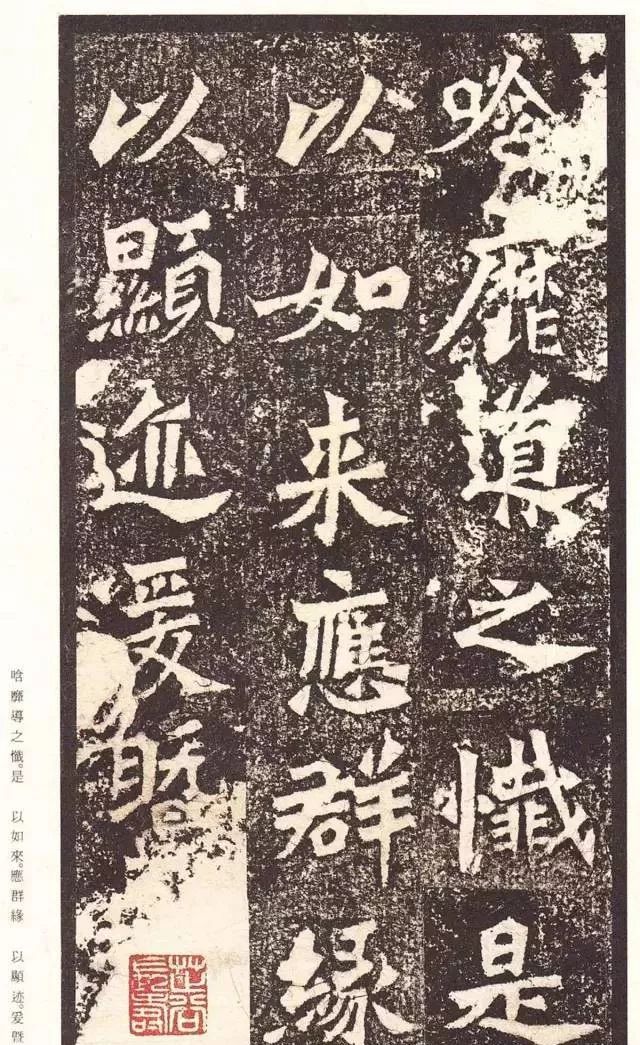 唅靡導之懺是
以如来應群緣
以顯迹爰暨
唅靡導之懺。是　以如來。應群緣　以顯迹。爰暨